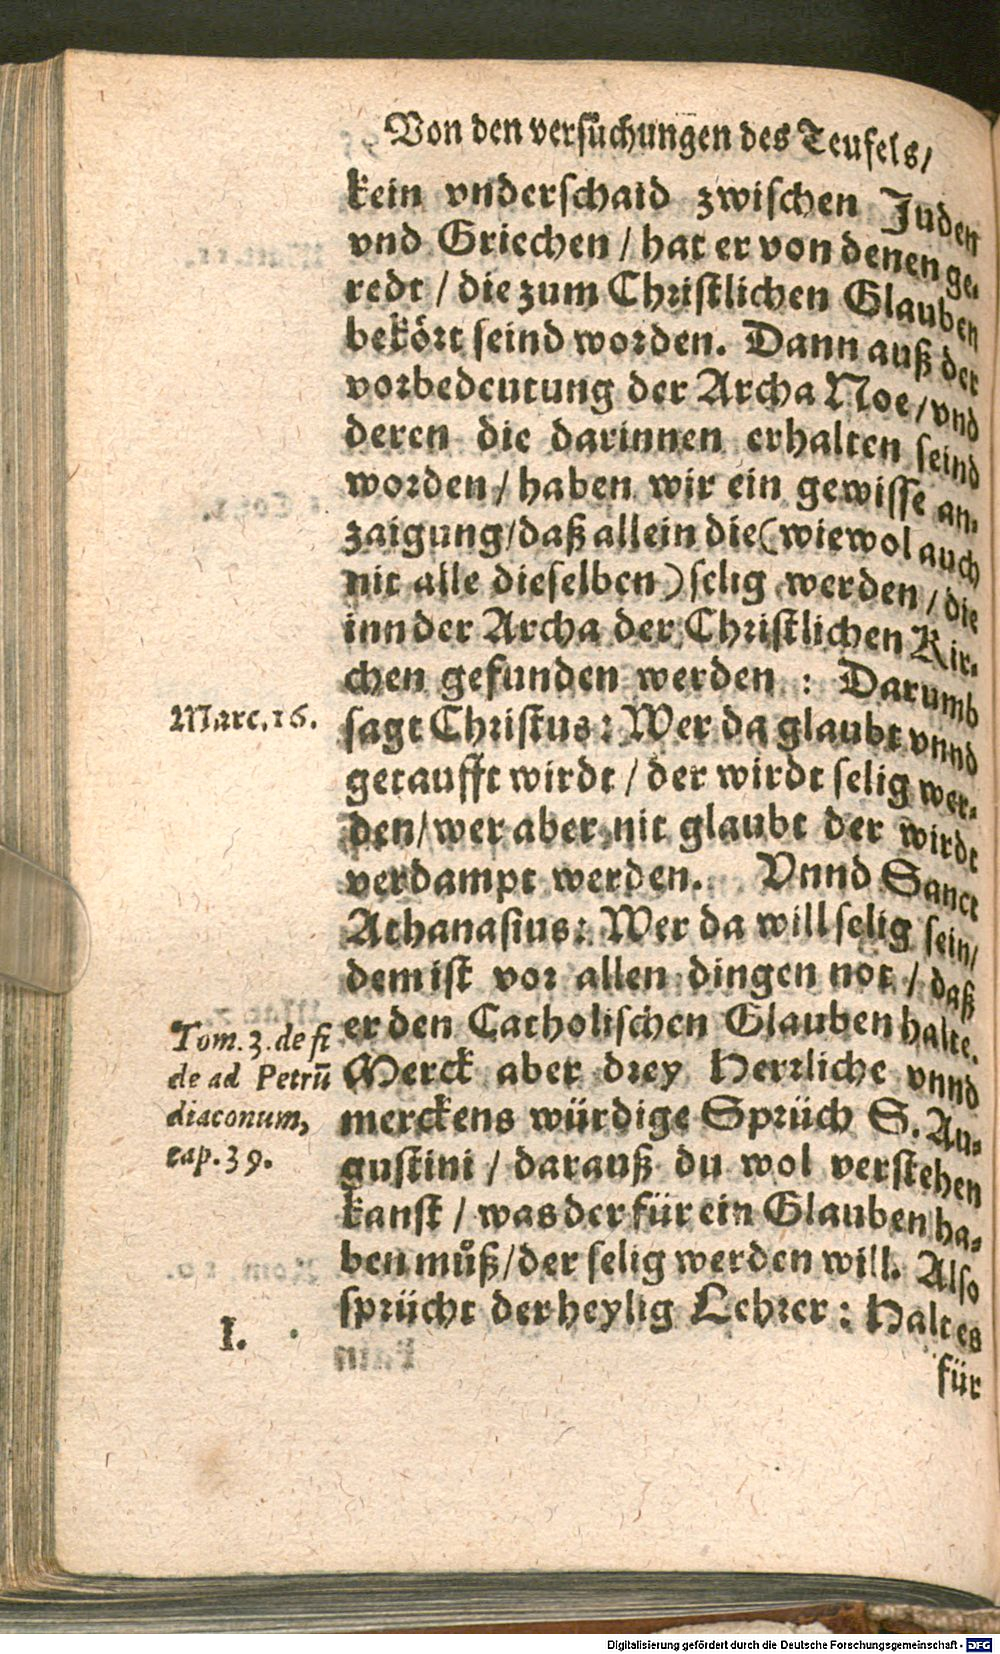 Von den versuͤchungen des Teufels/
kein vnderschaid zwischen Juden
vnd Griechen / hat er von denen ge-
redt / die zum Christlichen Glauben
bekoͤrt seind worden. Dann auß der
vorbedeutung der Archa Noe / vnd
deren die darinnen erhalten seind
worden / haben wir ein gewisse an-
zaigung/daß allein die (wiewol auch
nit alle dieselben) selig werden / die
inn der Archa der Christlichen Kir-
chen gefunden werden : Darumb
Marc.16.
sagt Christus: Wer da glaubt vnnd
getaufft wirdt / der wirdt selig wer-
den/wer aber nit glaubt der wirdt
verdampt werden. Vnnd Sanct
Athanasius: Wer da will selig sein/
dem ist vor allen dingen not / daß
er den Catholischen Glauben halte.
Tom.3.de fi
de ad Petrū
diaconum,
cap.39.
Merck aber drey Herrliche vnnd
merckens würdige Sprüch S. Au-
gustini / darauß du wol verstehen
kanst / was der für ein Glauben ha-
ben můß/der selig werden will. Also
I.
sprücht der heylig Lehrer : Halt es
für
Digitalisierung gefördert durch die Deutsche Forschungsgemeinschaft - DFG